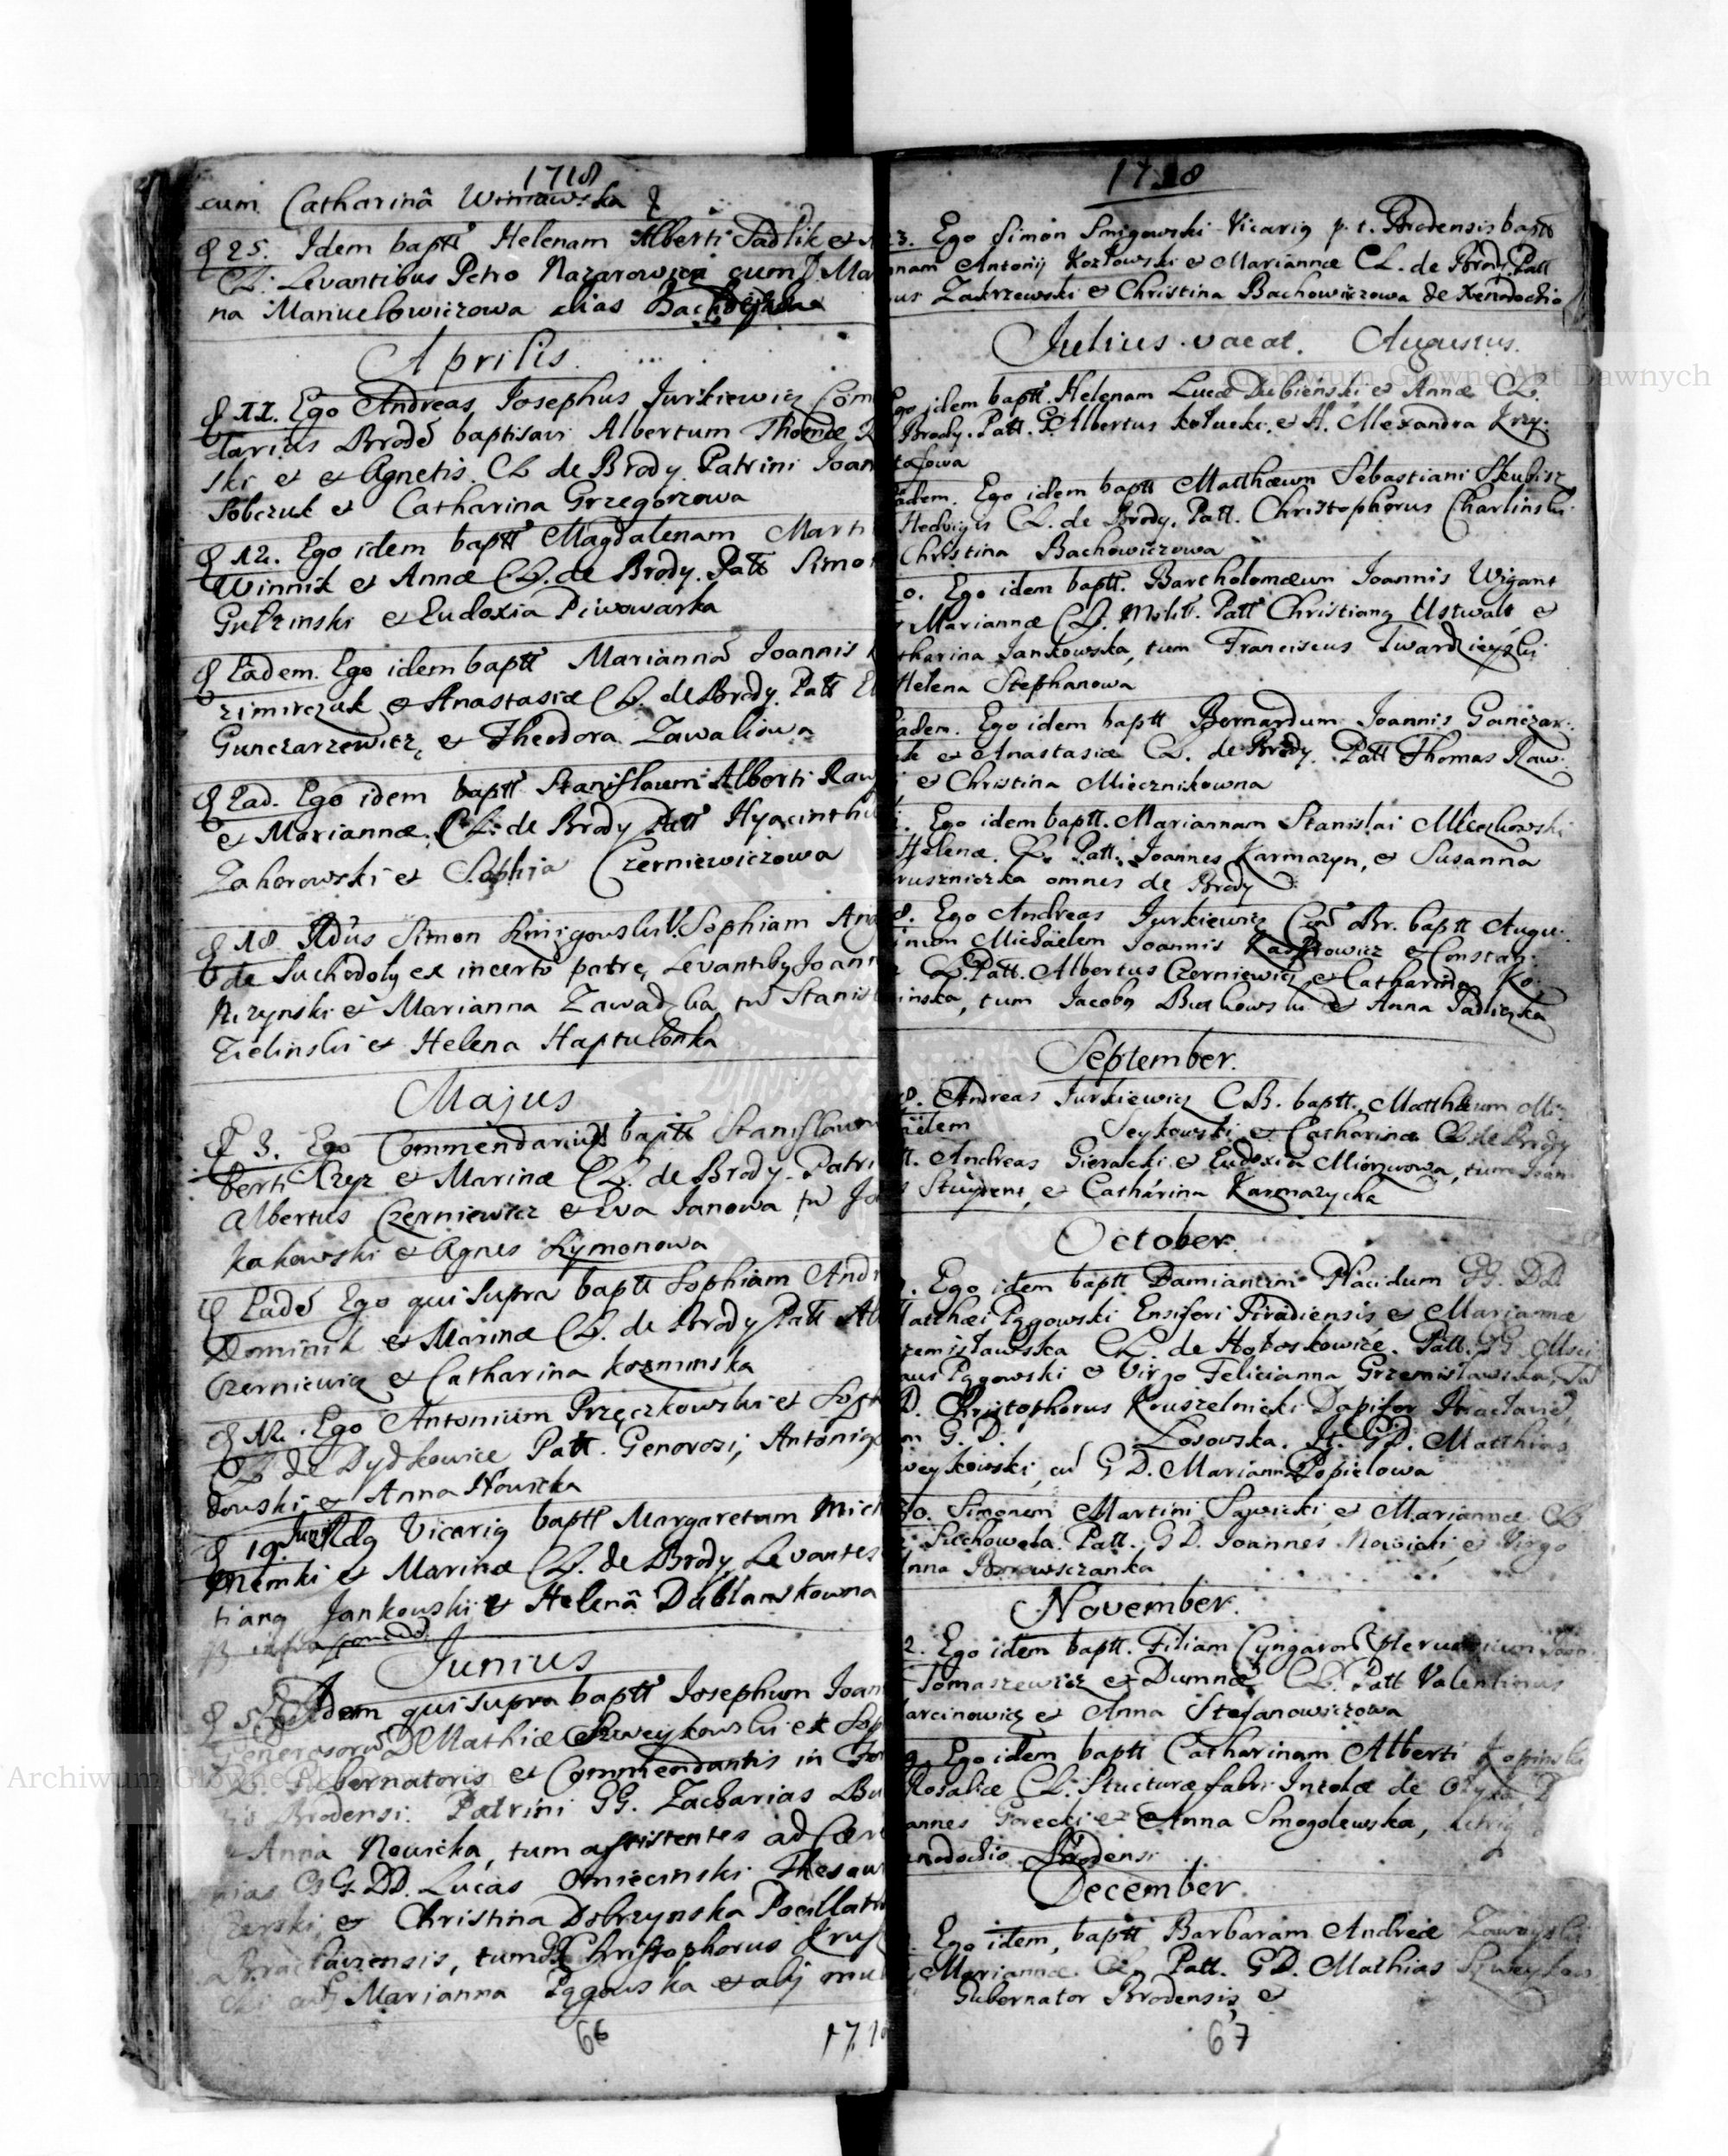 1718
cum Catharinâ Winiawska
25. Idem baptt Helenam Alberti Padlik et
CL. Levantibus Petro Nazarowicz cum Ma
na Manuelowiczowa alias
Aprilis
11. Ego Andreas Josephus Jurkiewicz Com
darius Brod baptisavi Albertum Thomæ
ski et et Agnetis CL de Brody Patrini Joan
Sobczuk et Catharina Grzegorzowa
12. Ego idem baptt Magdalenam Marti
Winnik et Annæ CL. de Brody. Patt Simo
et Eudoxia Piwowarka
Eadem. Ego idem baptt Marianna Joannis
zimirczuk et Anastasiæ CL. de Brody. Patt
Gunczarzewicz, et Theodora Zawaliowa
Ead. Ego idem baptt Stanislaum Alberti Raw
et Mariannæ. CL. de Brody Patt Hyacinthu
Zahorowski et Sophia Czerniewiczowa
18. Simon Smigowski V. Sophiam
de Suchodoly ex incerto patre, Levantibg Joan
Nizynski et Marianna tu Stanis
Zielinski et Helena Haptulonka
Majus
3. Ego Commendarius baptt Stanislaum
berti Czyz et Marinæ CL. de Brody. Patri
Albertus Czerniewicz et Eva Janowa tu
Kakowski et Agnes Szymonowa
Ead Ego qui supra baptt Sophiam Andr
Dominik et Marinæ CL. de Brody Patt Al
Czerniewicz et Catharina Kozminska
12. Ego Antonium Pręczkowski et Soph
CL de Dydkowice Patt. Generosi, Antonig
dowski et Anna Nowicka
19. Junii Vicarig baptt Margaretam Mich
et Marinæ CL. de Brody, Levantes
tiang Jankowski et Helenâ Dublanskowna
Junius
5. Idem qui supra baptt Josephum Joan
Generosoru D Mathiæ Szweykowski et Sop
Gubernatoris et Commendantis in For
Brodensi. Patrini GG. Zacharias Bu
Anna Nowicka, tum assistentes ad Cære
nias GG DD. Lucas Omiecinski Thesaur
Zerski, et Christina Dobrzynska Pocillatri
Braclaviensis, tum Christophorus Krus
cki Marianna Pągowska et alij mul
66
171
1718
23. Ego Simon Smigowski Vicarig p. t. Brodensis baptt
nnam Antonij Kozlowski et Mariannæ CL. de Brody. Patt
us Zakrzewski et Christina Bachowiczowa de Xenodochio
Julius vacat. Augustus.
Ego idem baptt. Helenam Lucæ Dubienski et Annæ CL.
Brody. Patt. G. Albertus et H. Alexandra Krzy
tofowa
Eadem. Ego idem baptt Matthæum Sebastiani Skubisz
Hedvigis CL. de Brody. Patt. Christophorus Charlinski
Christina Bachowiczowa
0. Ego idem baptt. Bartholomæum Joannis Wigant
Mariannæ CL. Milit. Patt Christiang Ustwalt et
tharina Jankowska, tum Franciscus Twardzieyski
Helena Stephanowa
Eadem. Ego idem baptt Bernardum Joannis Ganczar
uk et Anastasiæ CL. de Brody. Patt Thomas Raw
et Christina Miecznikowna
Ego idem baptt. Mariannam Stanislai Mieczkowski
Helenæ. CL. Patt. Joannes Karmazyn, et Susanna
ruszniczka omnes de Brody
8. Ego Andreas Jurkiewicz Com Br. baptt Augu
inum Michäelem Joannis Kasprowicz et Constan
CL. Patt. Albertus Czerniewicz, et Catharina Ko
inska, tum Jacobg et Anna Padliczka
September.
8. Andreas Jurkiewicz C.B. baptt. Matthæum Mi
äelem Seykowski et Catharinæ CL de Brody
tt. Andreas Gieracki et Eudoxia tum Joan
et Catharina Karmazycha
October.
Ego idem baptt Damianum Placidum GG. DD.
Matthæi Pągowski Ensiferi Siradiensis et Mariannæ
zemislawska CL. de Holoskowice. Patt. GG
aus Pągowski et Virgo Felicianna Grzemislawska, T
D. Christophorus Kruszelnicki Dapifer Braclavie
G. D. Losowska. It. GD. Matthias
weykowski, cu G D. Marianna Popielowa
30. Simonem Martini Sawicki et Mariannæ CL
Suchowola. Patt. G D. Joannes Nowicki et Virgo
Anna
November.
2. Ego idem baptt. Filiam Cyngarorum
Tomaszewicz et Dumnæ CL. Patt Valentinus
arcinowicz et Anna Stefanowiczowa
9. Ego idem baptt Catharinam Alberti
Rosaliæ CL. Structuræ fabri Incolæ de
annes Gorecki et Anna Smogolewska,
enodochio Brodensi
December.
Ego idem, baptt Barbaram Andreæ
Mariannæ CL. Patt. GD. Mathias Szweykow
Gubernator Brodensis, et
67
Archiwum Główne Akt Dawnych
Archiwum Główne Akt Dawnych